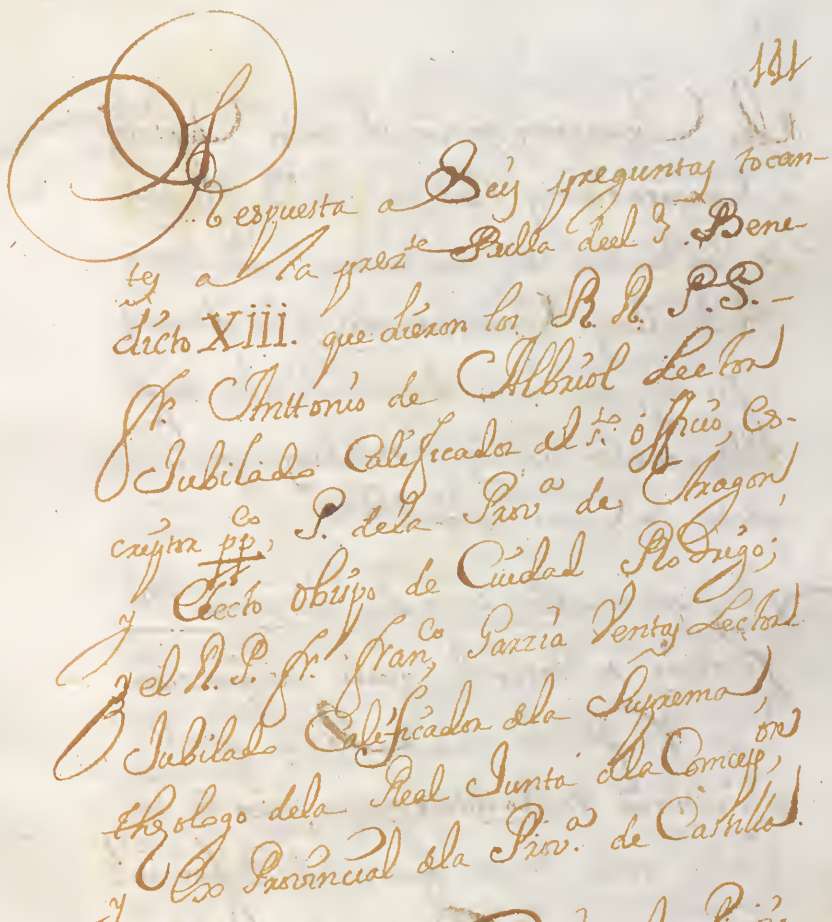 111
Respuesta a Seis preguntas tocan-
tes a la prez.te Bulla deel S. Bene-
dicto XIII. que dieron los R. R. P. P.
fr. Anttonio de Albiol Lector
Jubilado Calificador al s.to officio, es-
criptor pp.co, P. de la Prov.a de Aragon,
y Electo obispo de Ciudad Rodrigo;
y el R. P. fr. fran.co Garzia Ventas Lector
Jubilado Calificador de la Suprema,
theologo de la Real Junta de la Concep.on,
y Ex Provincial de la Prov.a de Castilla.